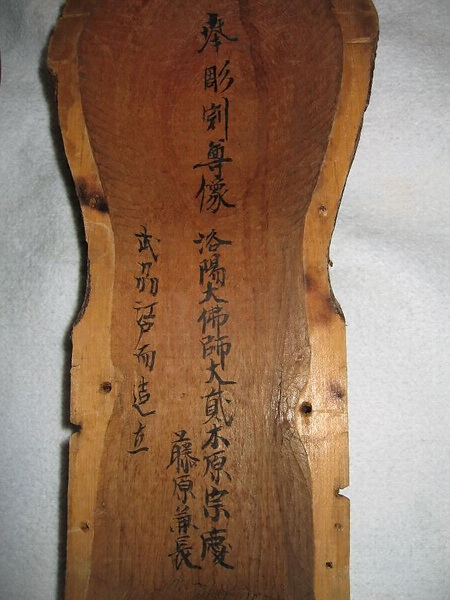 奉彫刻尊像 洛陽大佛師大貳木原宗慶
藤原兼長
武刕江戸而造立